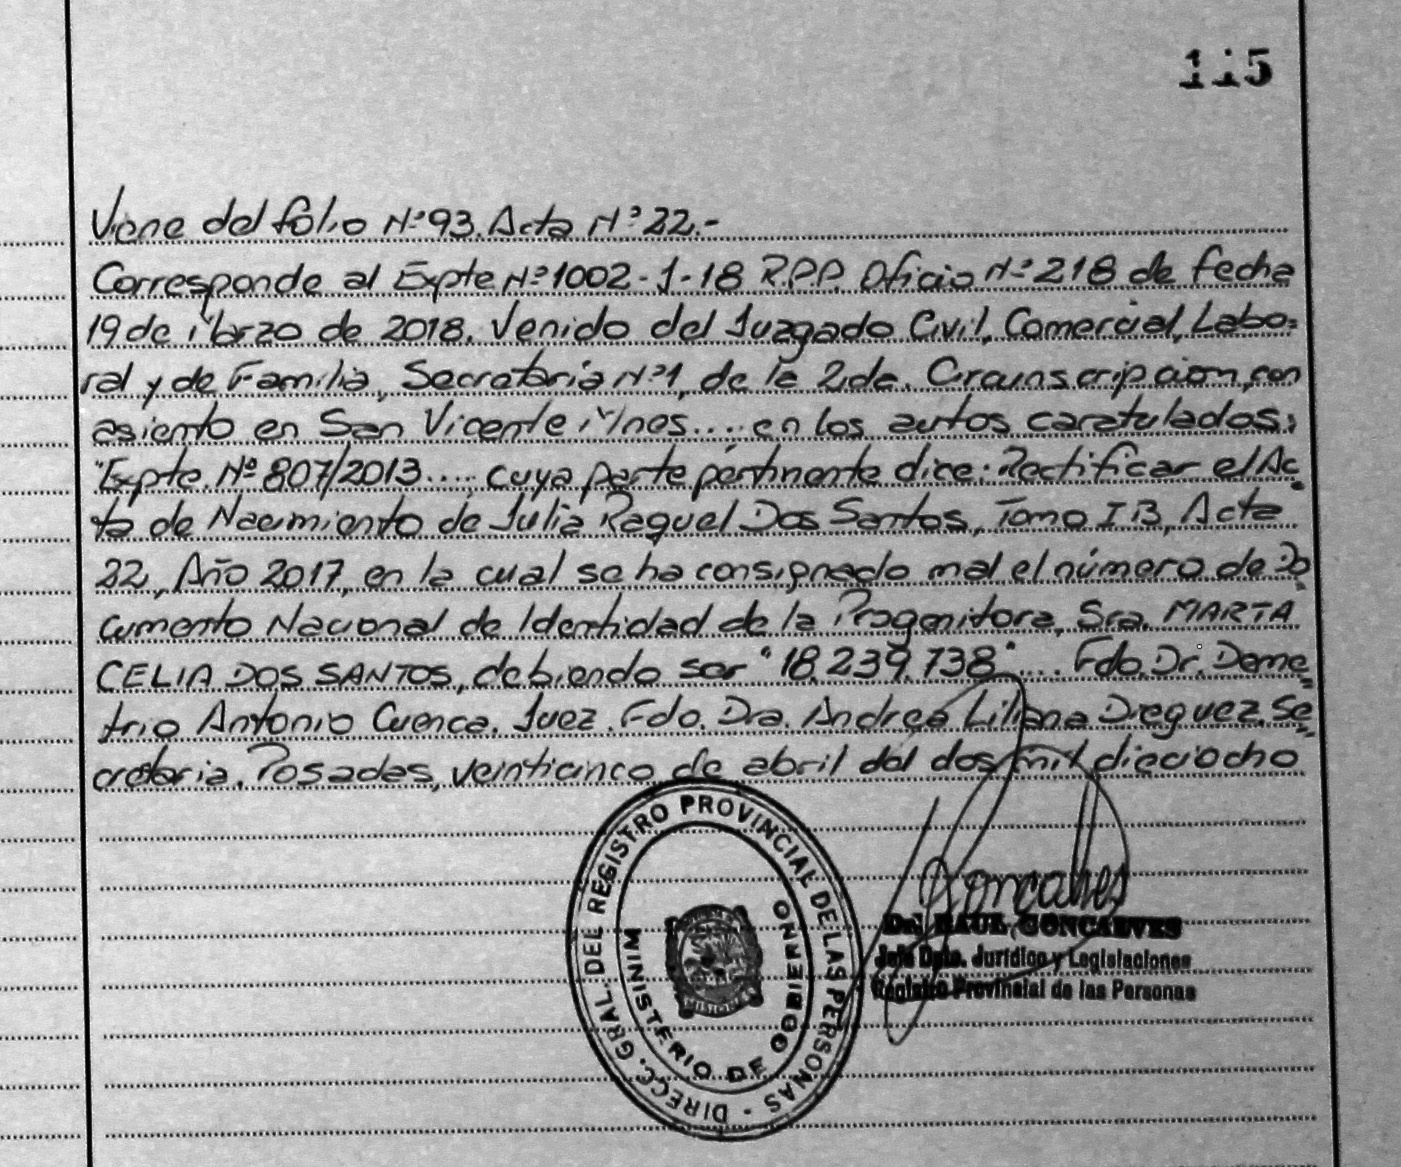 115
Viene del folio Nº 93. Acta Nº 22.-
Corresponde al Expte Nº 1002-1-18 R.P.P. Oficio Nº 218 de fecha
19 de Marzo de 2018. Venido del Juzgado Civil, Comercial, Labo=
ral y de Familia, Secretaría Nº 1, de la 2da. Circunscripcion, con
asiento en San Vicente Mnes.... en los autos caratulados:
"Expte. Nº 807/2013.... cuya parte pertinente dice: Rectificar el Ac
ta de Nacimiento de Julia Raquel Dos Santos, Tomo I B, Acta
22, Año 2017, en la cual se ha consignado mal el número de Do
cumento Nacional de Identidad de la Progenitora, Sra. MARTA
CELIA DOS SANTOS, debiendo ser "18.239.738".... Fdo. Dr. Deme=
trio Antonio Cuenca. Juez. Fdo. Dra. Andrea Liliana Dieguez. Se=
cretaria. Posadas, veinticinco de abril del dos mil dieciocho
DIRECC. GRAL. DEL REGISTRO PROVINCIAL DE LAS PERSONAS -
MINISTERIO DE GOBIERNO
Goncalves
Dr. RAUL GONCALVES
Jefe Dpto. Jurídico y Legislaciones
Registro Provincial de las Personas